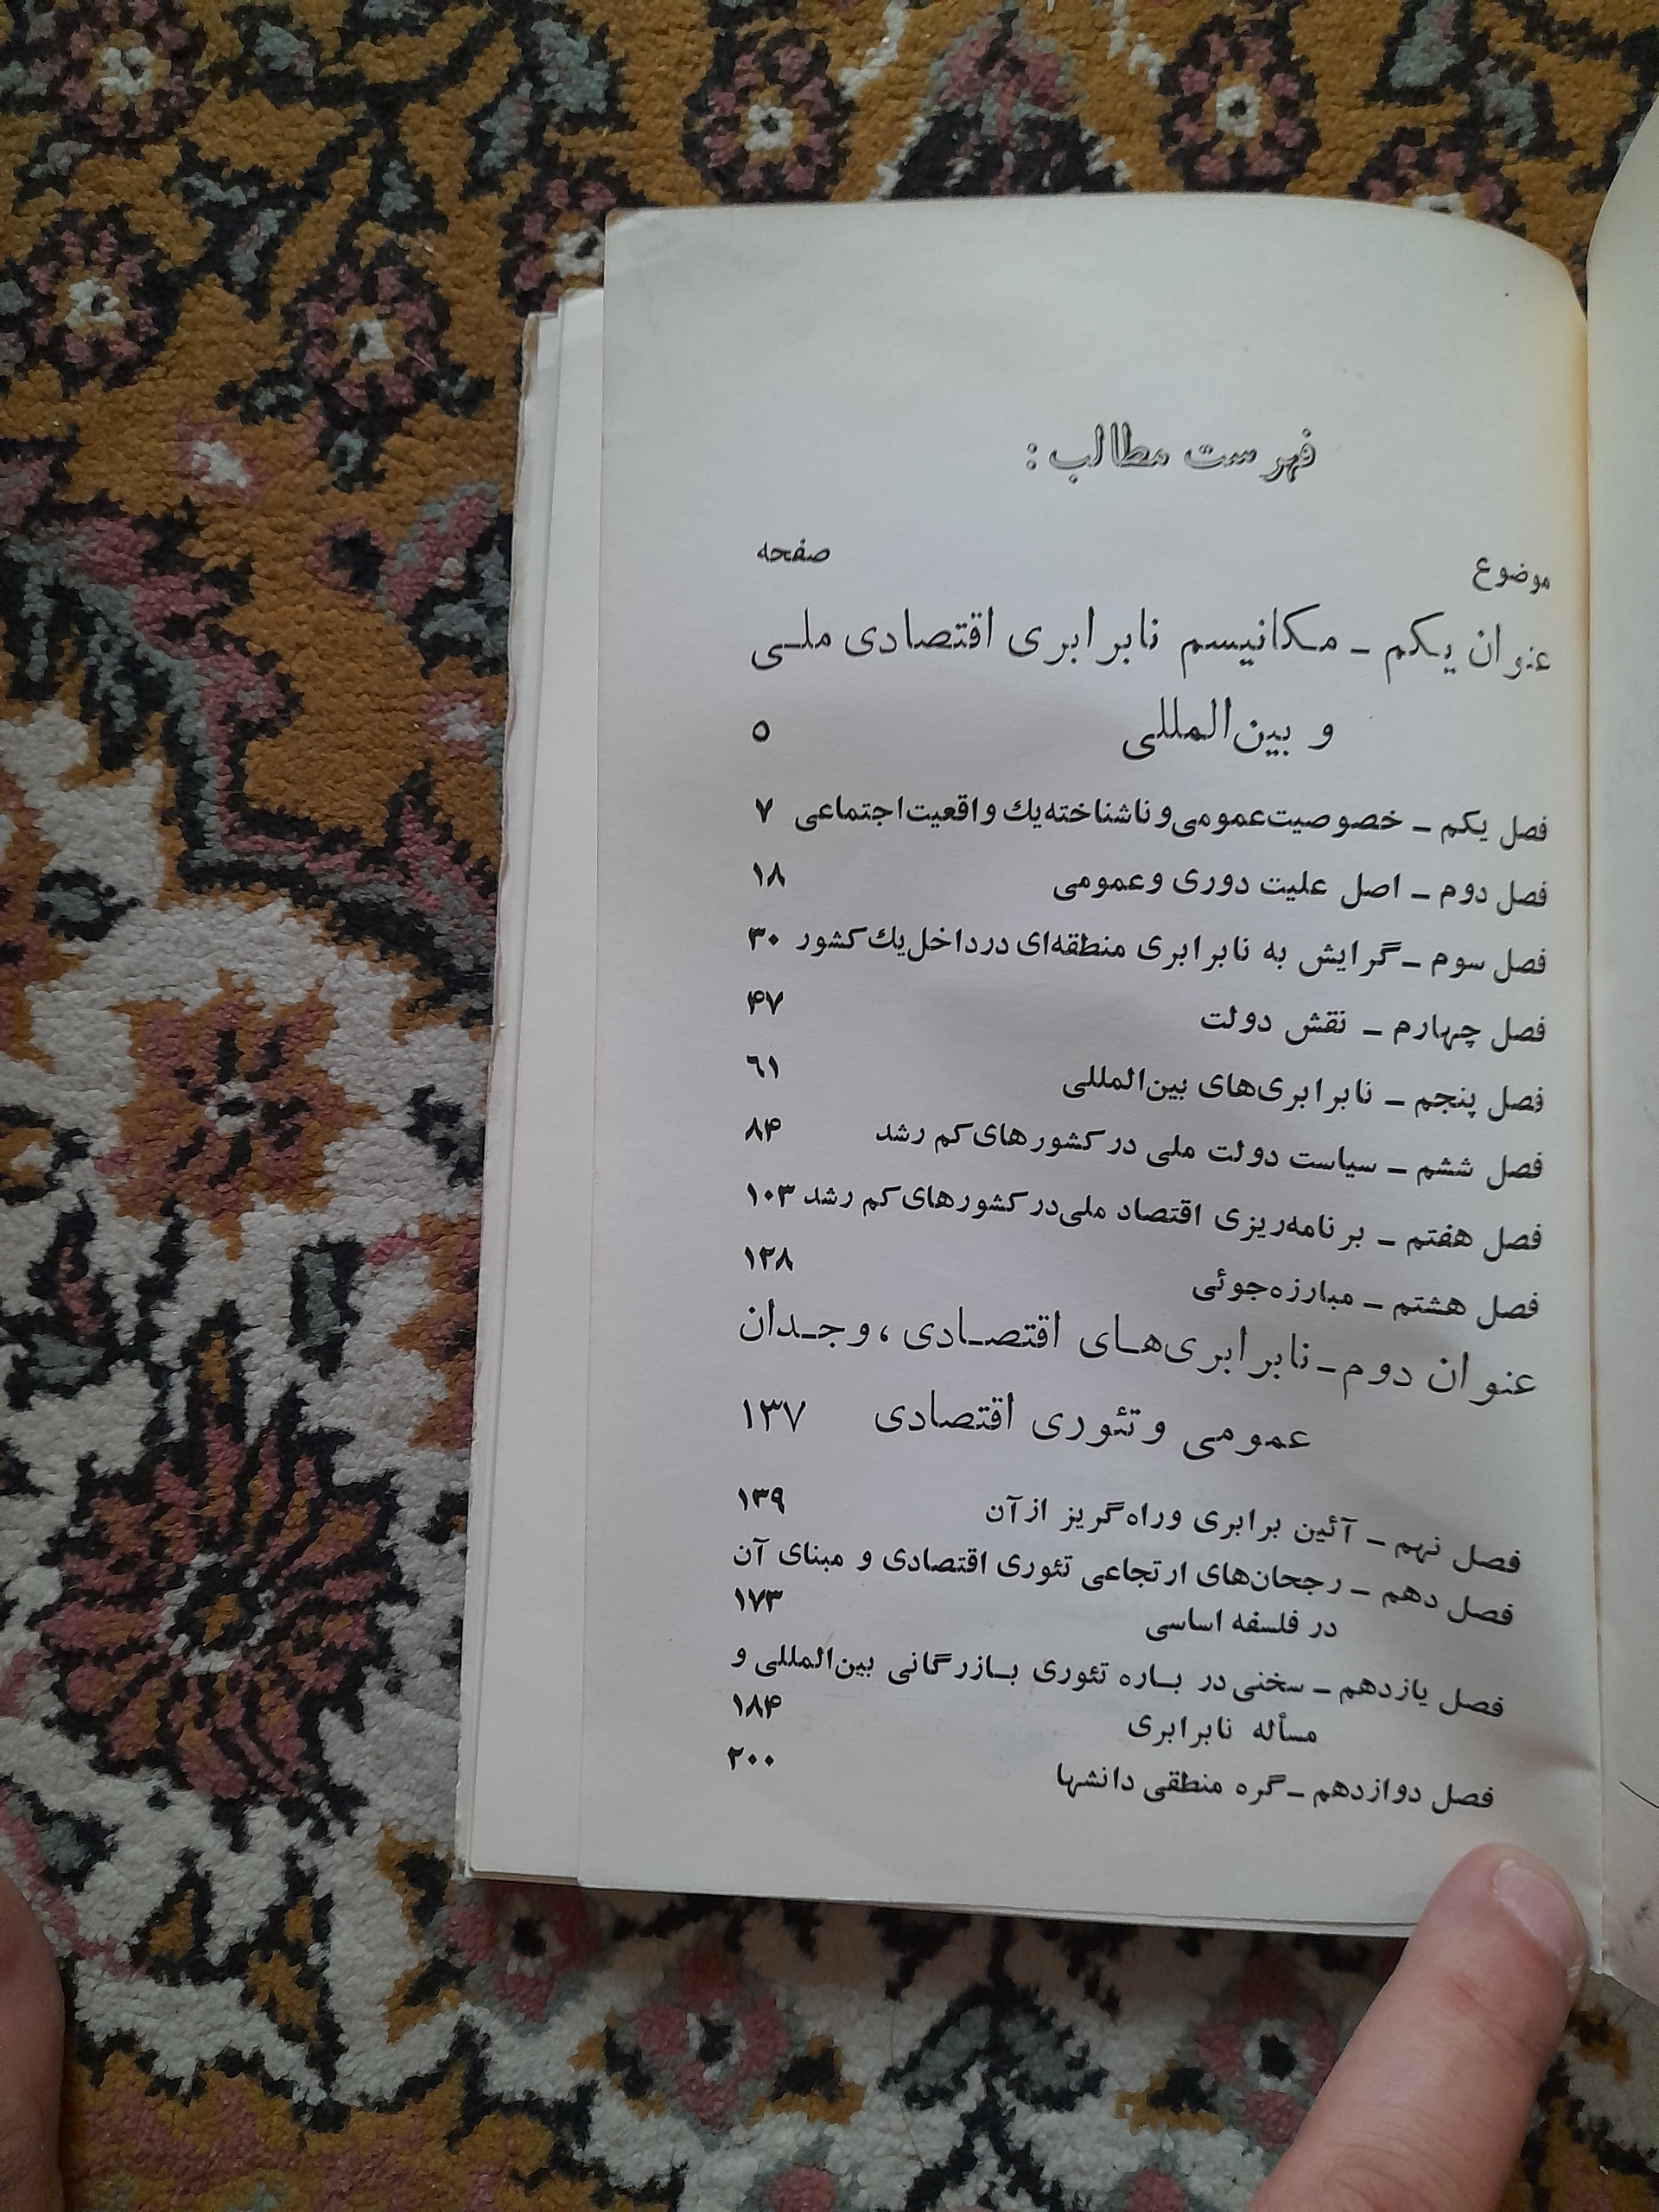 فهرست مطالب :
موضوع صفحه
عنوان یکم ـ مکانیسم نابرابری اقتصادی ملی
و بین‌المللی ۵
فصل یکم ـ خصوصیت عمومی و ناشناخته یك واقعیت اجتماعی ۷
فصل دوم ـ اصل علیت دوری وعمومی ۱۸
فصل سوم ـ گرایش به نابرابری منطقه‌ای درداخل یك کشور ۳۰
فصل چهارم ـ نقش دولت ۴۷
فصل پنجم ـ نابرابری‌های بین‌المللی ٦۱
فصل ششم ـ سیاست دولت ملی در کشورهای کم رشد ۸۴
فصل هفتم ـ برنامه‌ریزی اقتصاد ملی در کشورهای کم رشد ۱۰۳
فصل هشتم ـ مبارزه‌جوئی ۱۲۸
عنوان دوم ـ نابرابری‌های اقتصادی ، وجدان
عمومی و تئوری اقتصادی ۱۳۷
فصل نهم ـ آئین برابری وراه گریز ازآن ۱۳۹
فصل دهم ـ رجحان‌های ارتجاعی تئوری اقتصادی و مبنای آن
در فلسفه اساسی ۱۷۳
فصل یازدهم ـ سخنی در باره تئوری بازرگانی بین‌المللی و
مسأله نابرابری ۱۸۴
فصل دوازدهم ـ گره منطقی دانشها ۲۰۰